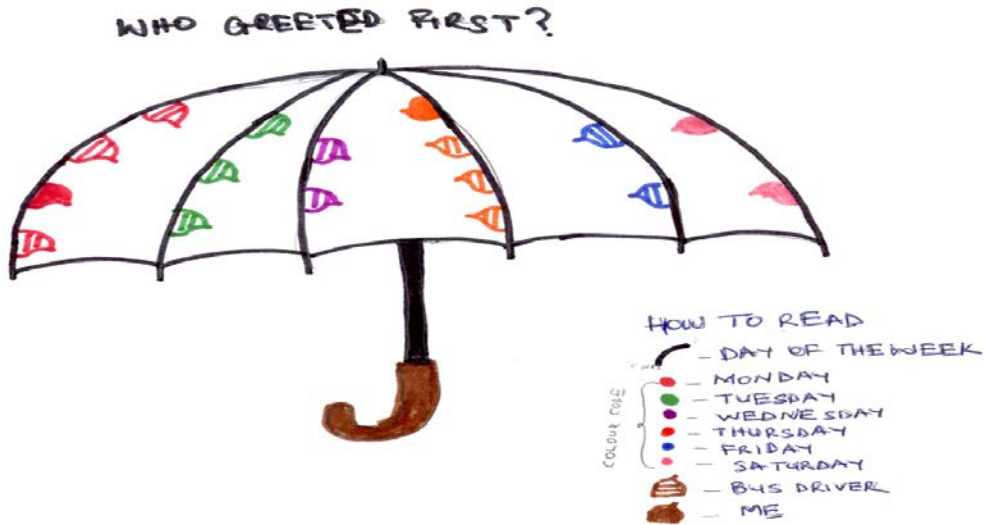 WHO GREETED FIRST?
HOW TO READ
- DAY OF THE WEEK
COLOUR CODE
- MONDAY
- TUESDAY
- WEDNESDAY
- THURSDAY
- FRIDAY
- SATURDAY
- BUS DRIVER
- ME